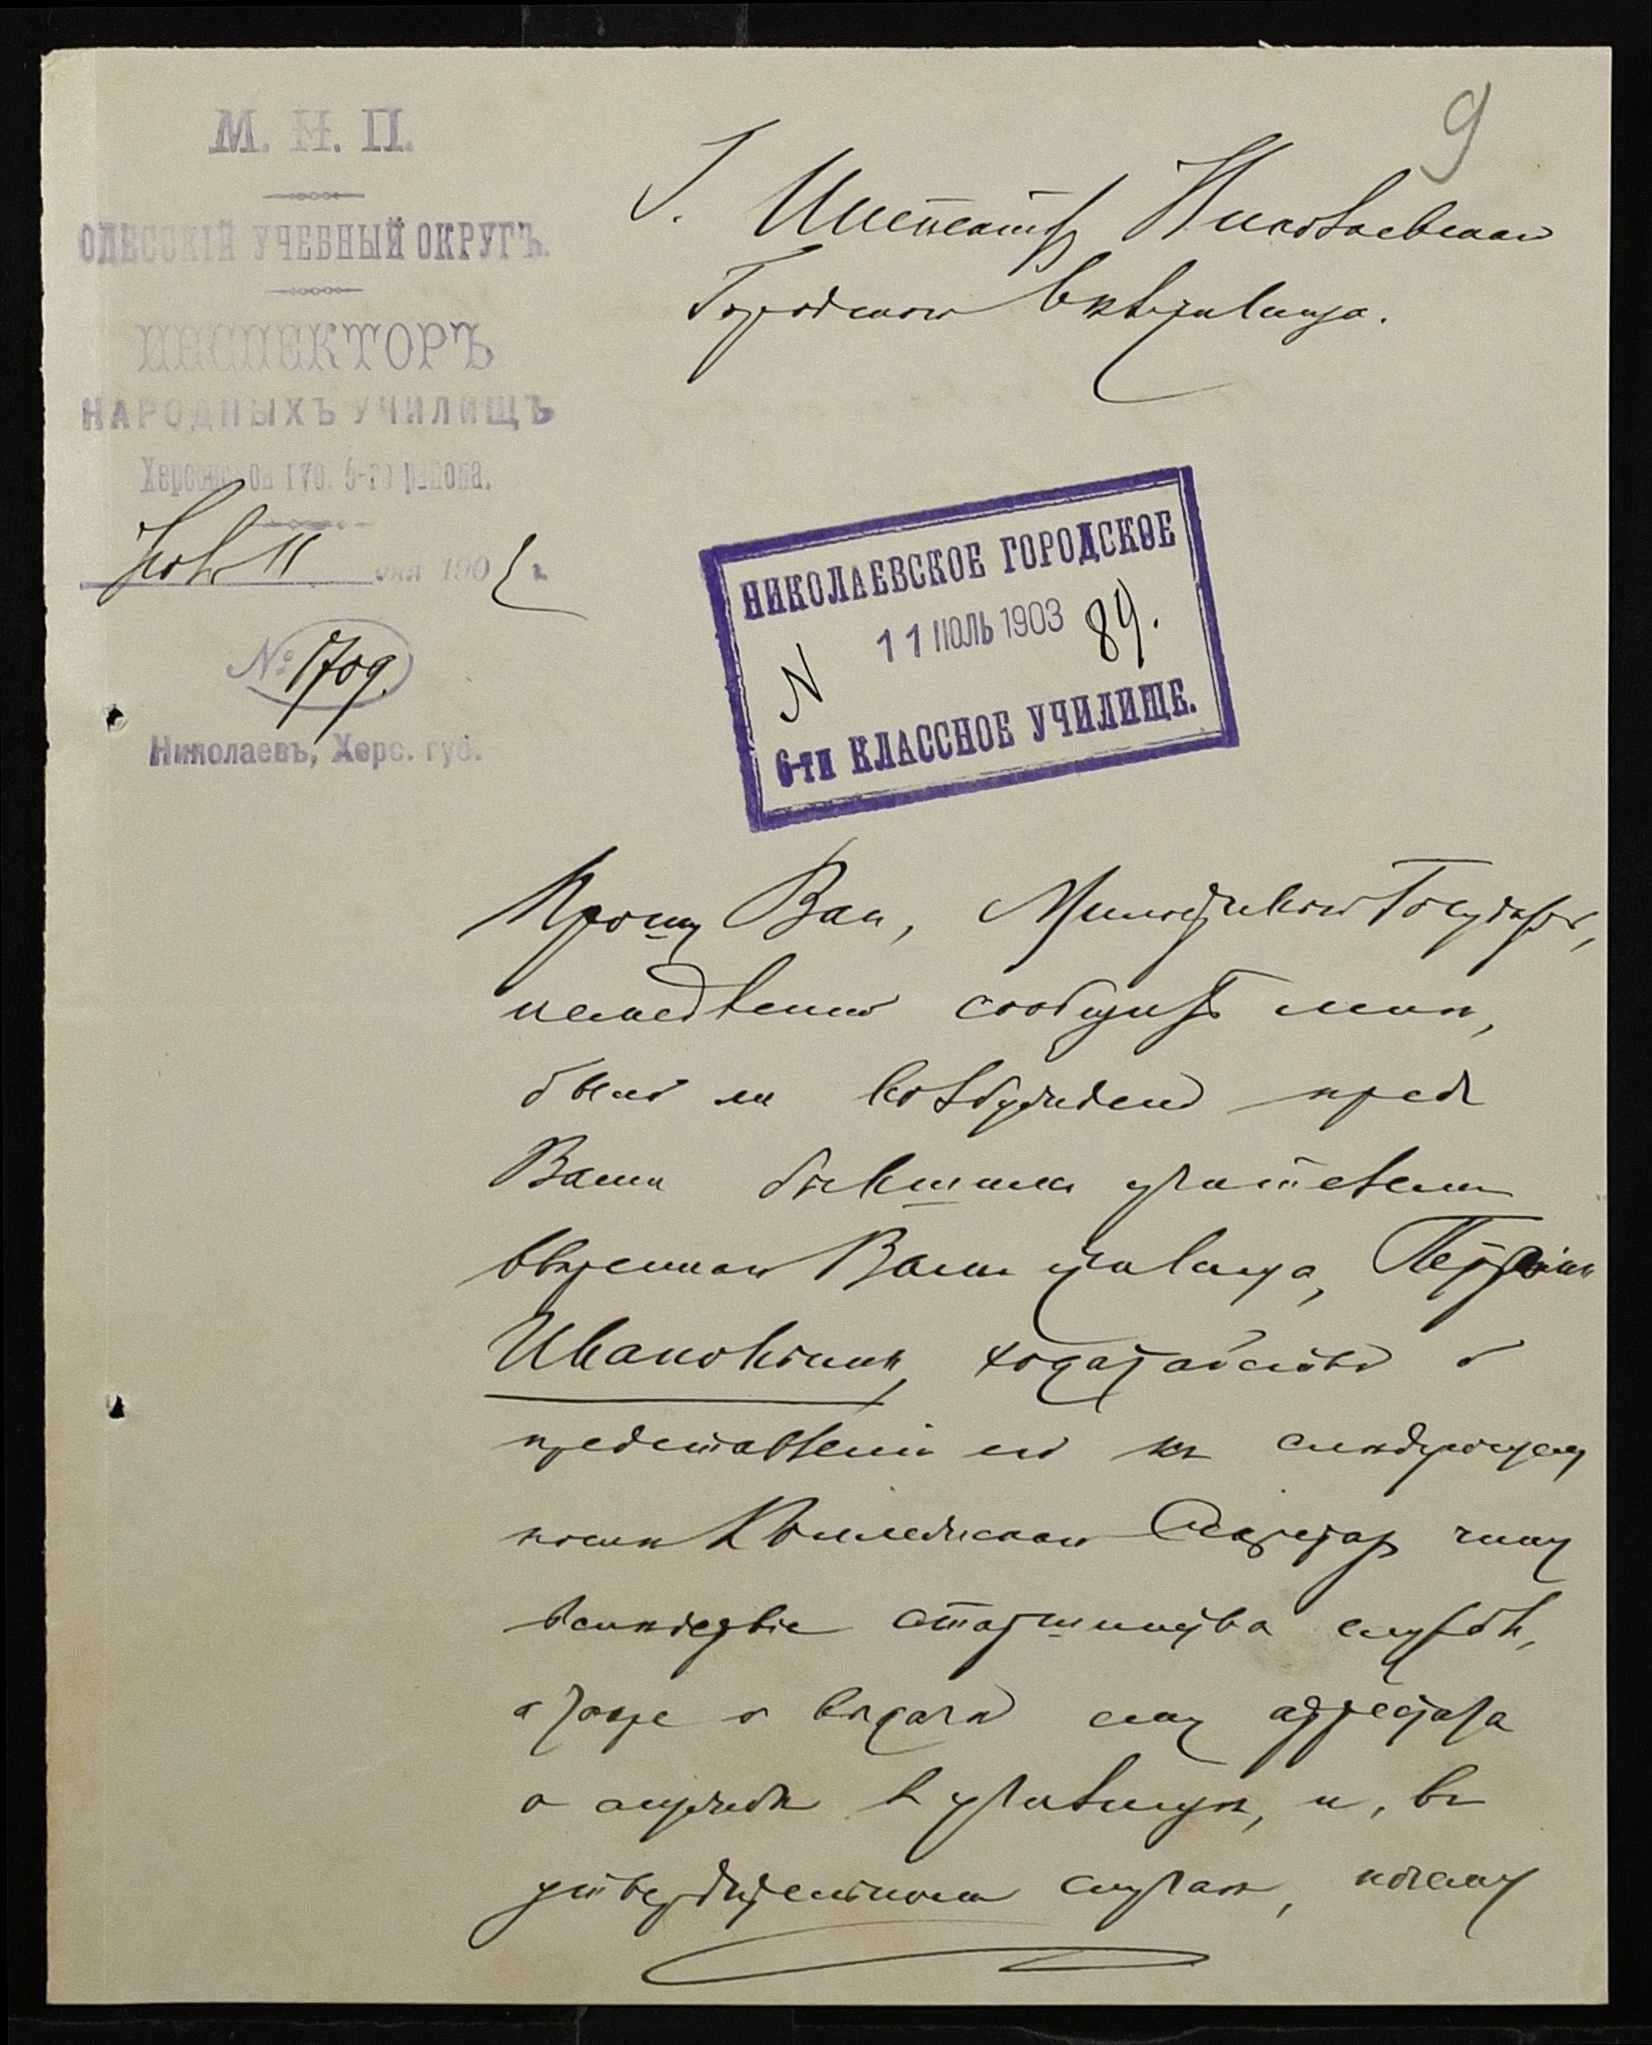 9
М. Н. П.
ОДЕССКІЙ УЧЕБНЫЙ ОКРУГЪ.
ИНСПЕКТОРЪ
НАРОДНЫХЪ УЧИЛИЩЪ
Херсонской губ. 5-го района.
11 дня 1903 г.
№ 1709.
Николаевъ, Херс. губ.
Г. Инспектору Николаевскаго
Городского 6 кл. училища.
НИКОЛАЕВСКОЕ ГОРОДСКОЕ
11 ІЮЛЬ 1903
N 89.
6-ти КЛАССНОЕ УЧИЛИЩЕ.
Прошу Вас, Милостивый Государь,
немедленно сообщить мнѣ,
было ли возбуждено предъ
Вами бывшимъ учителемъ
ввѣреннаго Вамъ училища,
Ивановымъ, ходатайство о
представленіи его къ слѣдующему
послѣ Коллежскаго Секретаря чину
вслѣдствіе старшинства службы,
а также о выдачѣ ему аттестата
о службѣ въ училищѣ, и, въ
утвердительномъ случаѣ, почему